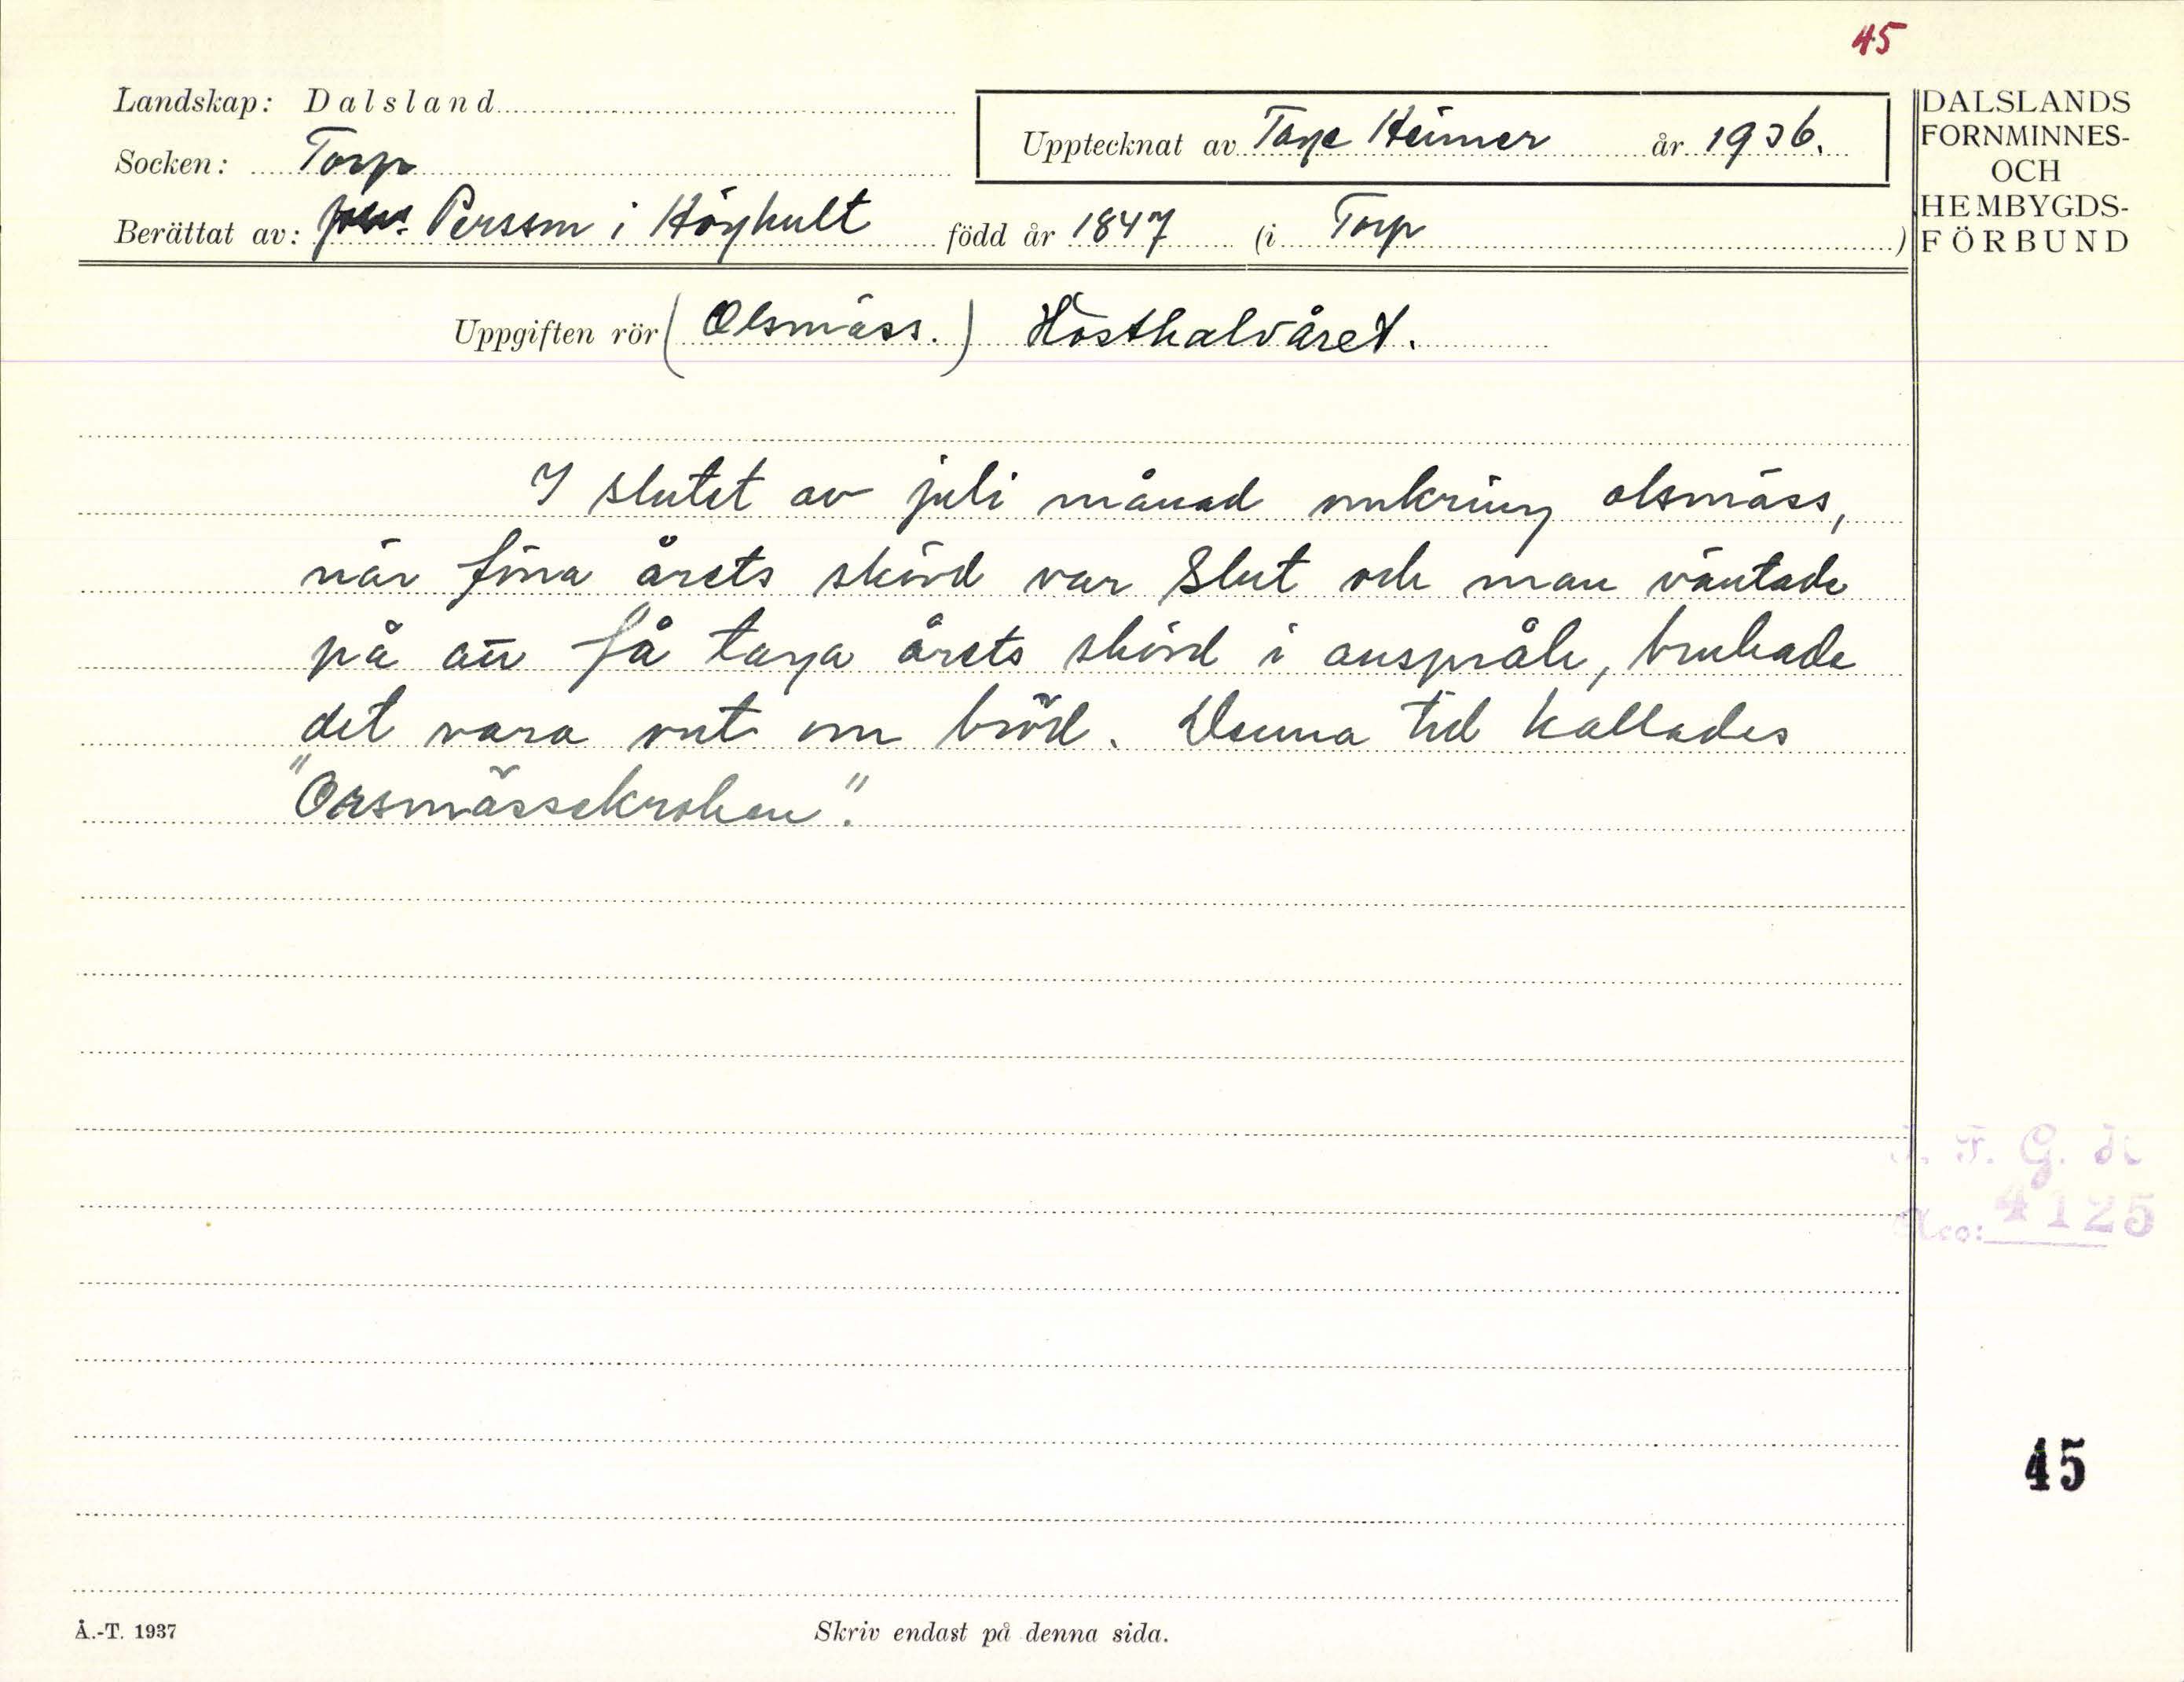 45
Landskap: Dalsland
Upptecknat av Tage Heimer år 1936.
Socken: Torp
Berättat av: Johs. Persson i Höghult född år 1847 (i Torp)
DALSLANDS
FORNMINNES-
OCH
HEMBYGDS-
FÖRBUND
Uppgiften rör (Olsmäss.) Hösthalvåret.
I slutet av juli månad omkring olsmäss,
när förra årets skörd var slut och man väntade
på att få taga årets skörd i anspråk, brukade
det vara ont om bröd. Denna tid kallades
"Orsmässekroken".
I. F. G. dr
Acc: 4125
45
Å.-T. 1937
Skriv endast på denna sida.